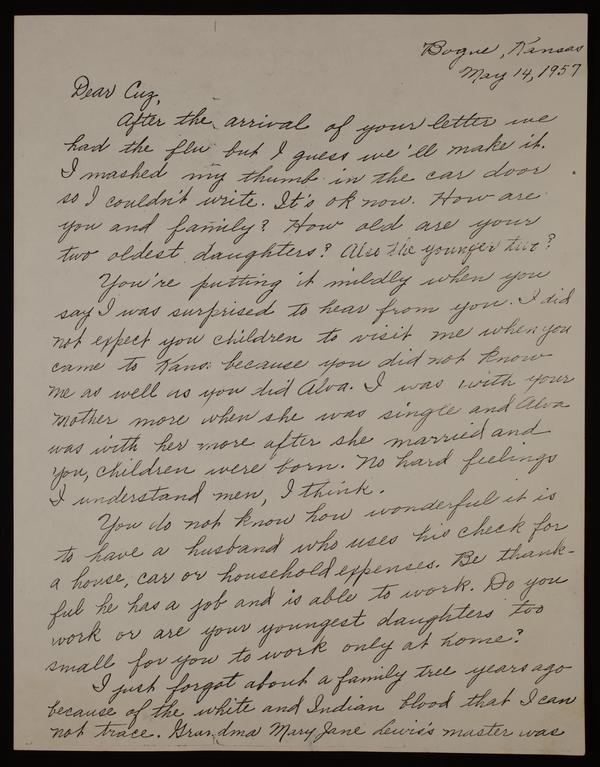 Bogue, Kansas
May 14, 1957
Dear Cuz,
After the arrival of your letter we
had the flu but I guess we'll make it.
I mashed my thumb in the car door
so I couldn't write. It's ok now. How are
you and family? How old are your
two oldest daughters? Also the younger two?
You're putting it mildly when you
say I was surprised to hear from you. I did
not expect you children to visit me when you
came to Kans. because you did not know
me as well as you did Alva. I was with your
mother more when she was single and Alva
was with her more after she married and
you, children were born. No hard feelings
I understand men, I think.
You do not know how wonderful it is
to have a husband who uses his check for
a house, car or household expenses. Be thank-
ful he has a job and is able to work. Do you
work or are your youngest daughters too
small for you to work only at home?
I just forgot about a family tree years ago
because of the white and Indian blood that I can
not trace. Grandma Mary Jane Lewis's master was